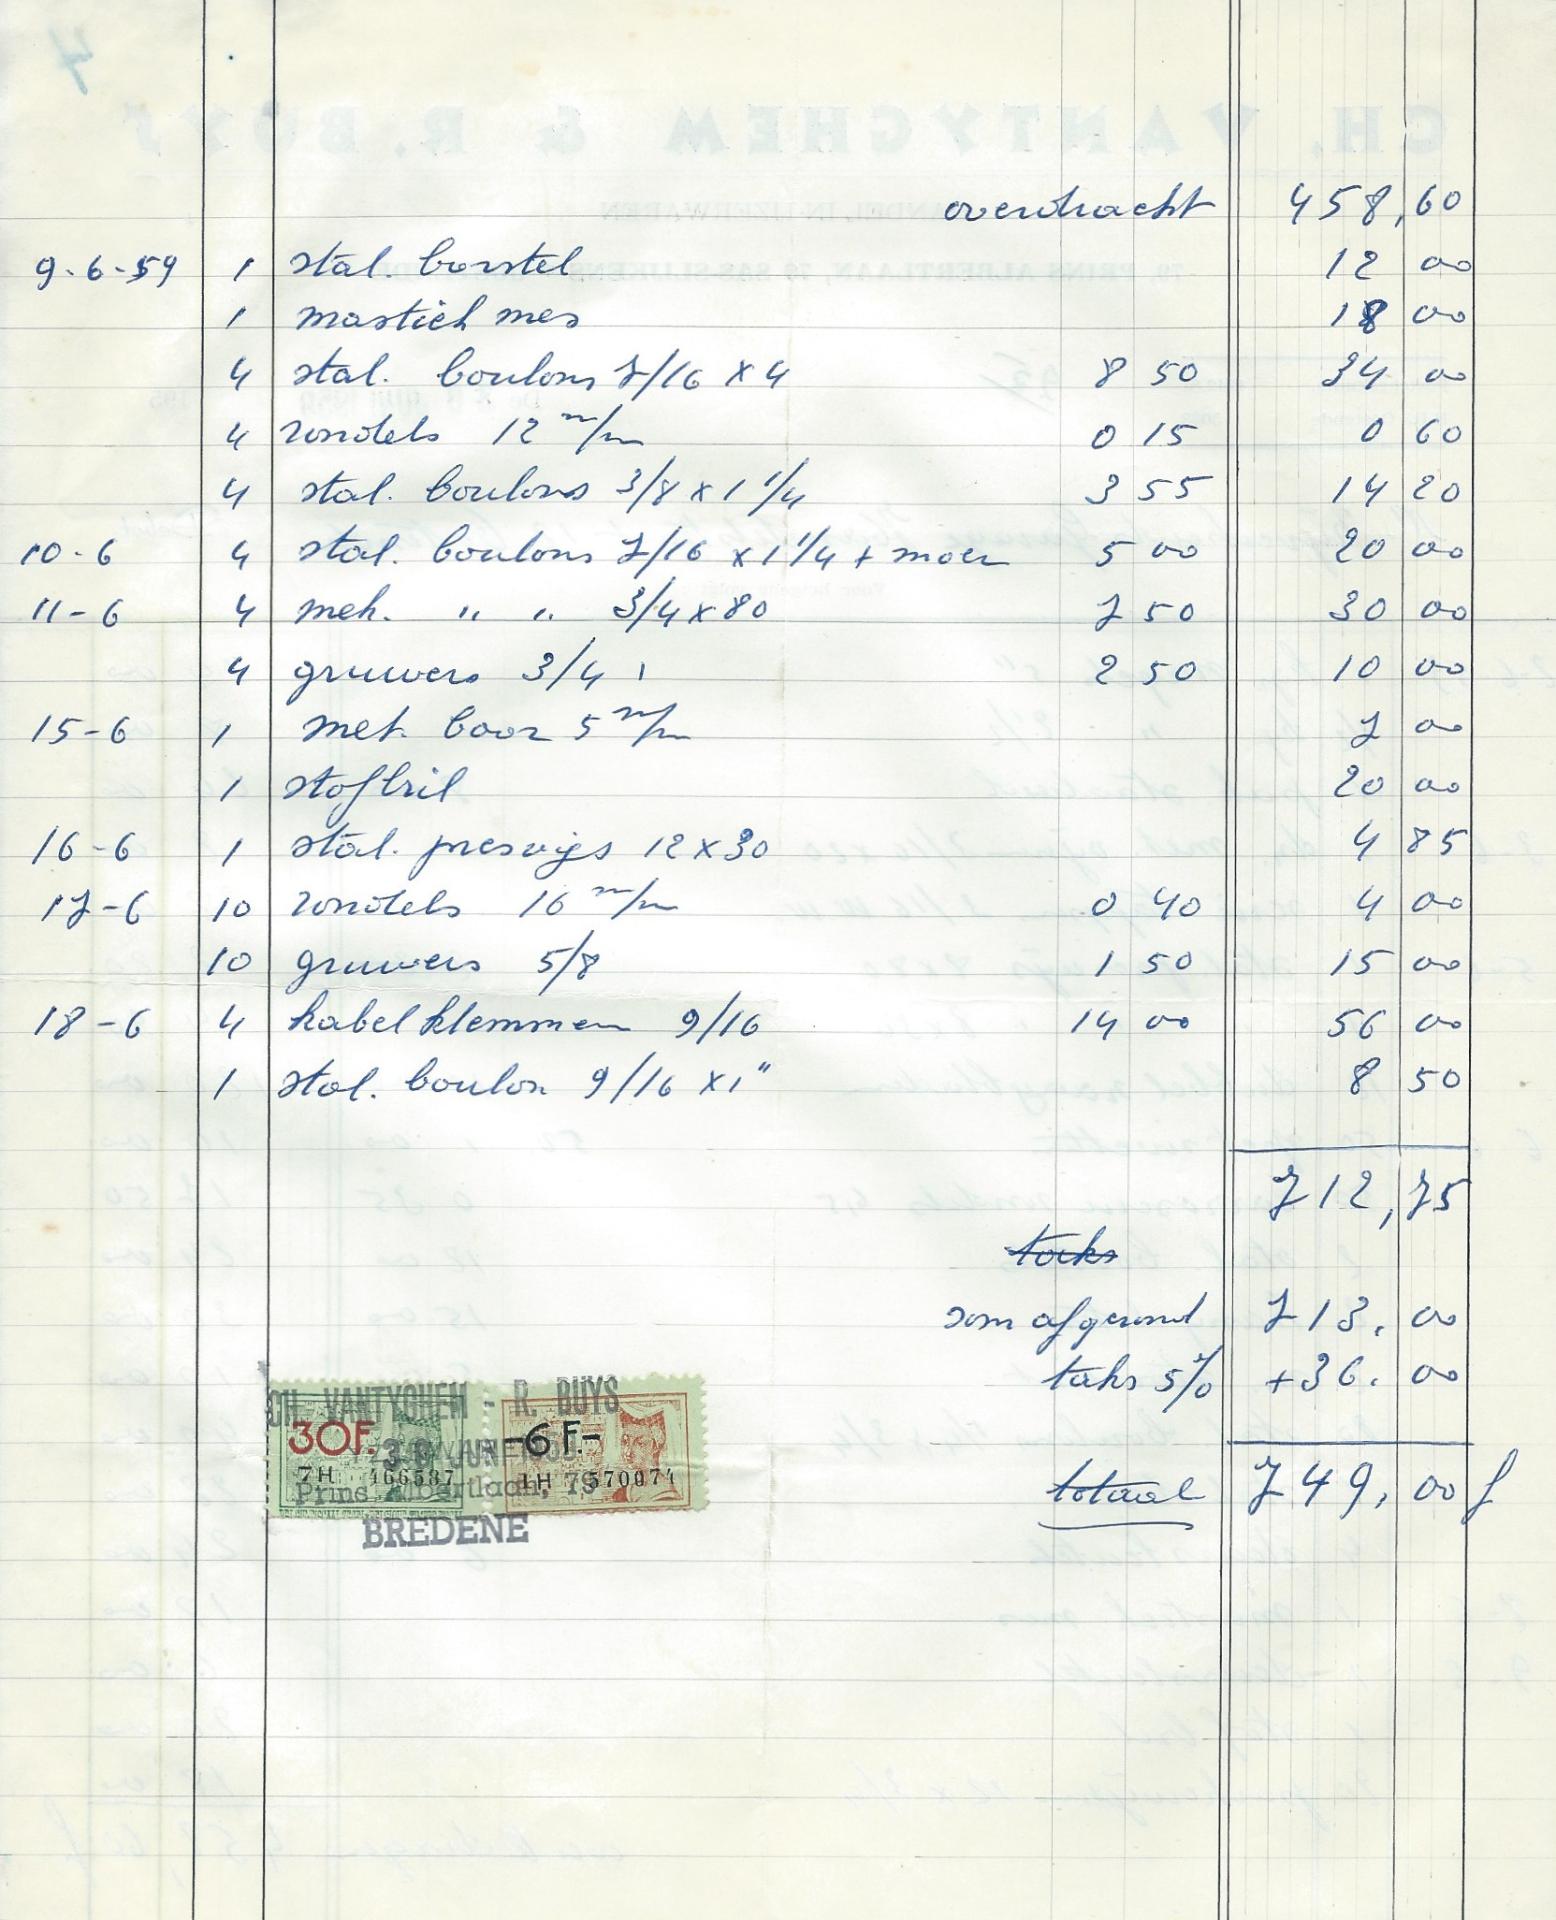 overdracht 458,60
9-6-59 1 stal borstel 12 00
1 mastiek mes 18 00
4 stal. boulons 7/16 x 4 8 50 34 00
4 rondels 12 m/m 0 15 0 60
4 stal. boulons 3/8 x 1 1/4 3 55 14 20
10-6 4 stal. boulons 7/16 x 1 1/4 + moer 5 00 20 00
11-6 4 mek. " " 3/4 x 80 7 50 30 00
4 gruwers 3/4 2 50 10 00
15-6 1 met. boor 5 m/m 7 00
1 stofbril 20 00
16-6 1 stal. presvijs 12 x 30 4 85
17-6 10 rondels 16 m/m 0 40 4 00
10 gruwers 5/8 1 50 15 00
18-6 4 kabelklemmen 9/16 14 00 56 00
1 stal. boulon 9/16 x 1" 8 50
712,75
taks
som afgerond 713.00
taks 5% +36.00
totaal 749,00 f
CH. VANTYGHEM - R. BUYS
30F. -6 F.-
30 JUNI
7H 466587 1H 570074
Prins Albertlaan, 79
BREDENE